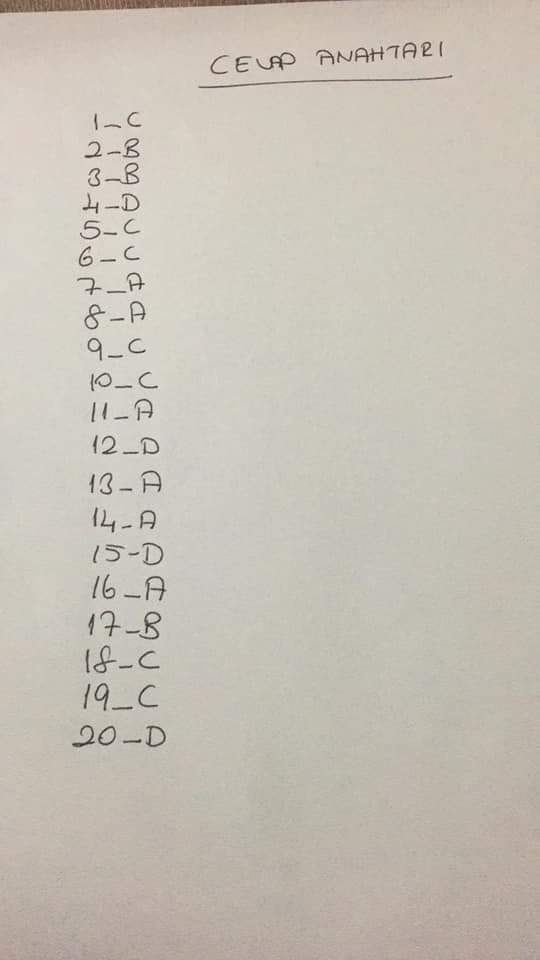 CEVAP ANAHTARI
1_C
2_B
3_B
4_D
5_C
6_C
7_A
8_A
9_C
10_C
11_A
12_D
13_A
14_A
15-D
16_A
17_B
18_C
19_C
20_D